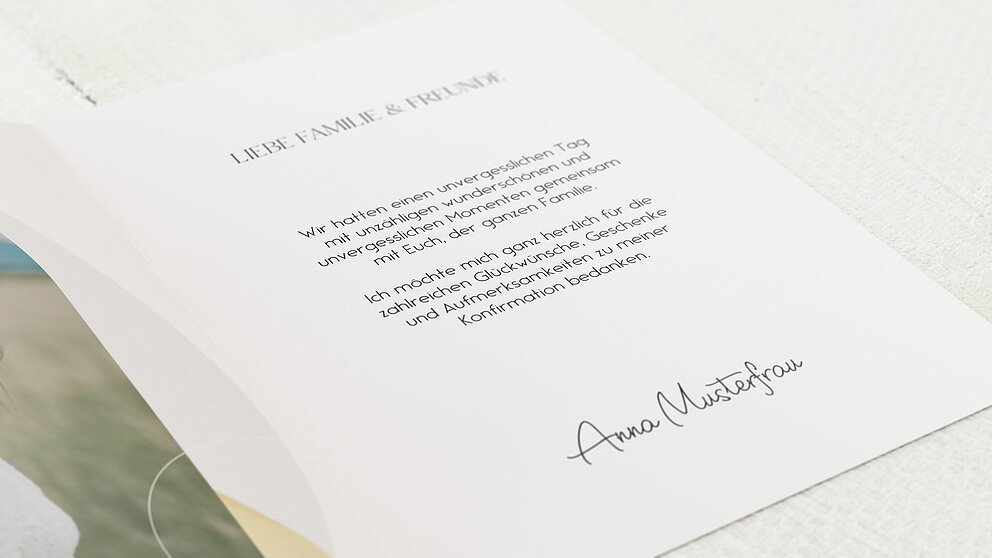 LIEBE FAMILIE & FREUNDE
Wir hatten einen unvergesslichen Tag
mit unzähligen wunderschönen und
unvergesslichen Momenten gemeinsam
mit Euch, der ganzen Familie.
Ich möchte mich ganz herzlich für die
zahlreichen Glückwünsche, Geschenke
und Aufmerksamkeiten zu meiner
Konfirmation bedanken.
Anna Musterfrau